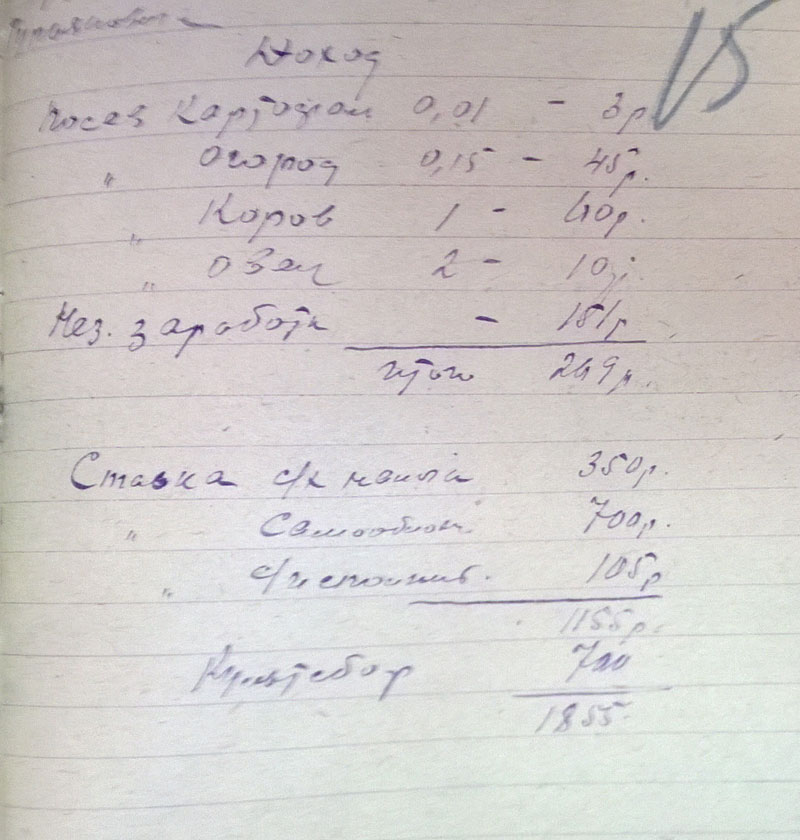 15
Доход
Посев Картофеля 0,01 - 3р
" Огород 0,15 - 45р.
" Коров 1 - 40р.
" Овец 2 - 10р.
Нез. заработк - 151р
Итого 249р.
Ставка с/х налога 350р.
" Самооблож. 700р.
" 105р
1155р.
Культсбор 700
1855